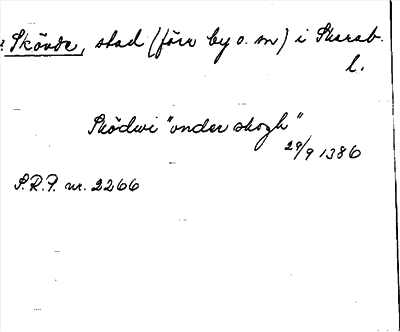 ? Skövde, stad (förr by o. sn) i Skarab.
l.
Skødwi "vnder skogh"
29/9 1386
S.R.P. nr. 2266